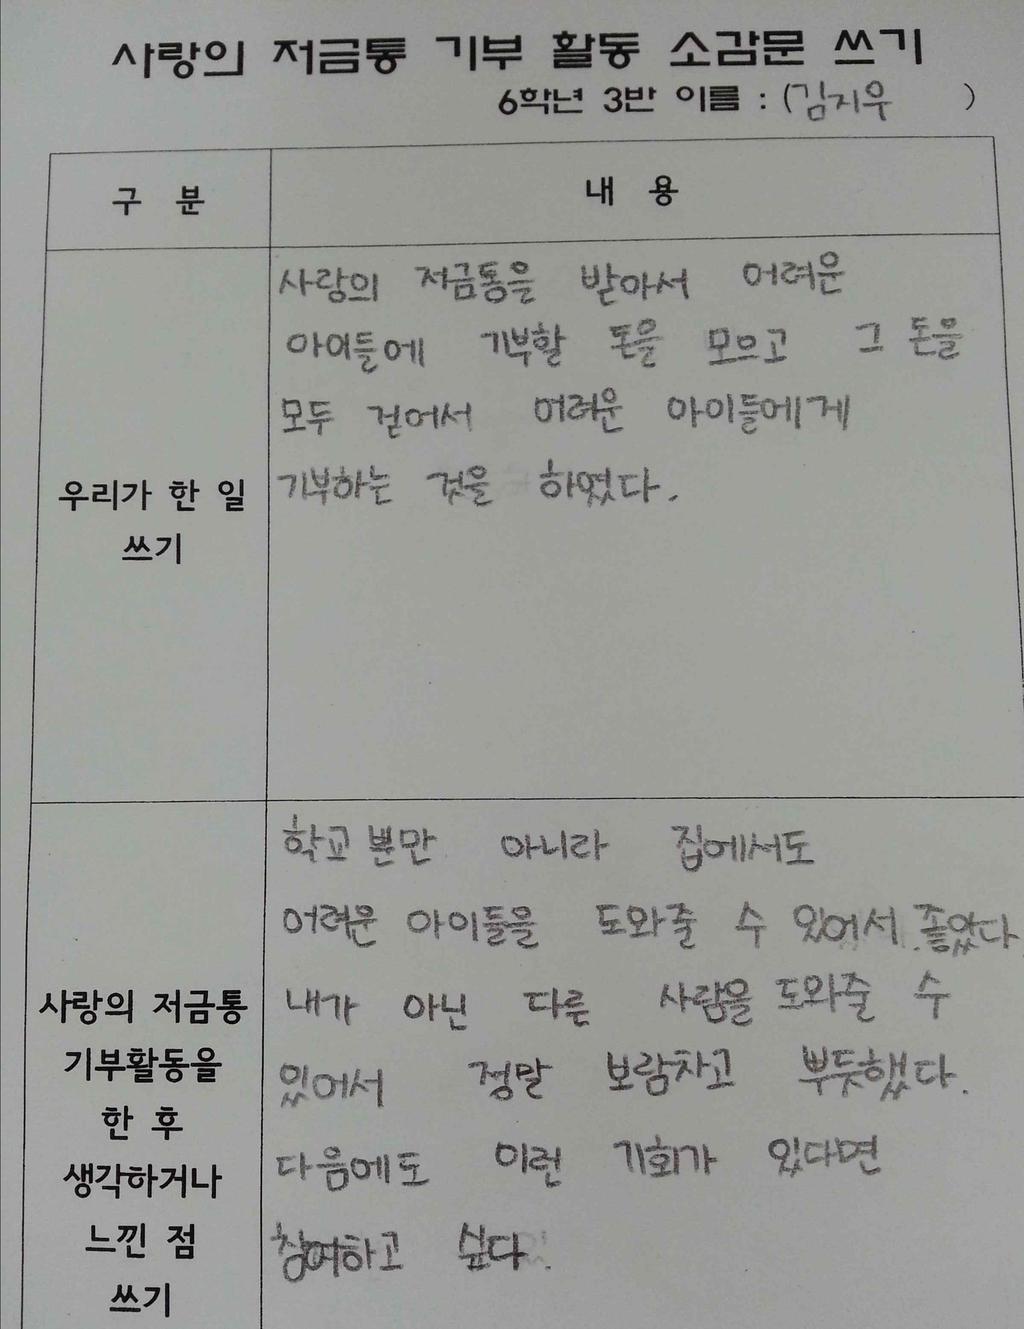 사랑의 저금통 기부 활동 소감문 쓰기
6학년 3반 이름 : (김지우 )
구 분
내 용
우리가 한 일
쓰기
사랑의 저금통을 받아서 어려운
아이들에 기부할 돈을 모으고 그 돈을
모두 걷어서 어려운 아이들에게
기부하는 것을 하였다.
사랑의 저금통
기부활동을
한 후
생각하거나
느낀 점
쓰기
학교 뿐만 아니라 집에서도
어려운 아이들을 도와줄 수 있어서 좋았다
내가 아닌 다른 사람을 도와줄 수
있어서 정말 보람차고 뿌듯했다.
다음에도 이런 기회가 있다면
참여하고 싶다.